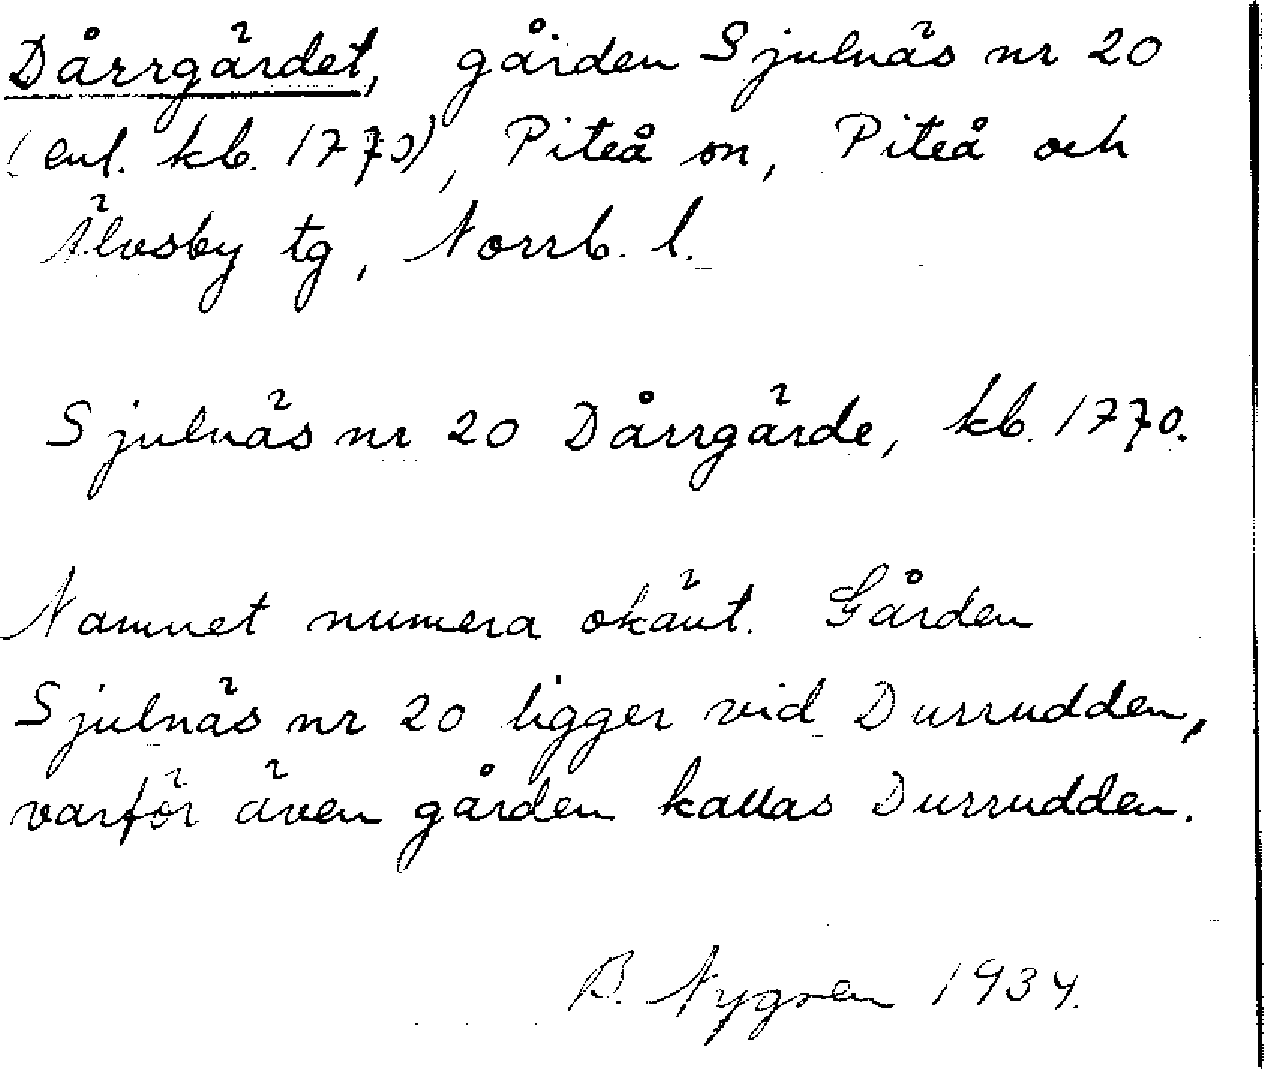 Dårrgärdet, gården Sjulnäs nr 20
(enl. kb. 1770), Piteå sn, Piteå och
Älvsby tg, Norrb. l.
Sjulnäs nr 20 Dårrgärde, kb. 1770.
Namnet numera okänt. Gården
Sjulnäs nr 20 ligger vid Durrudden,
varför även gården kallas Durrudden.
B. Nygren 1934.